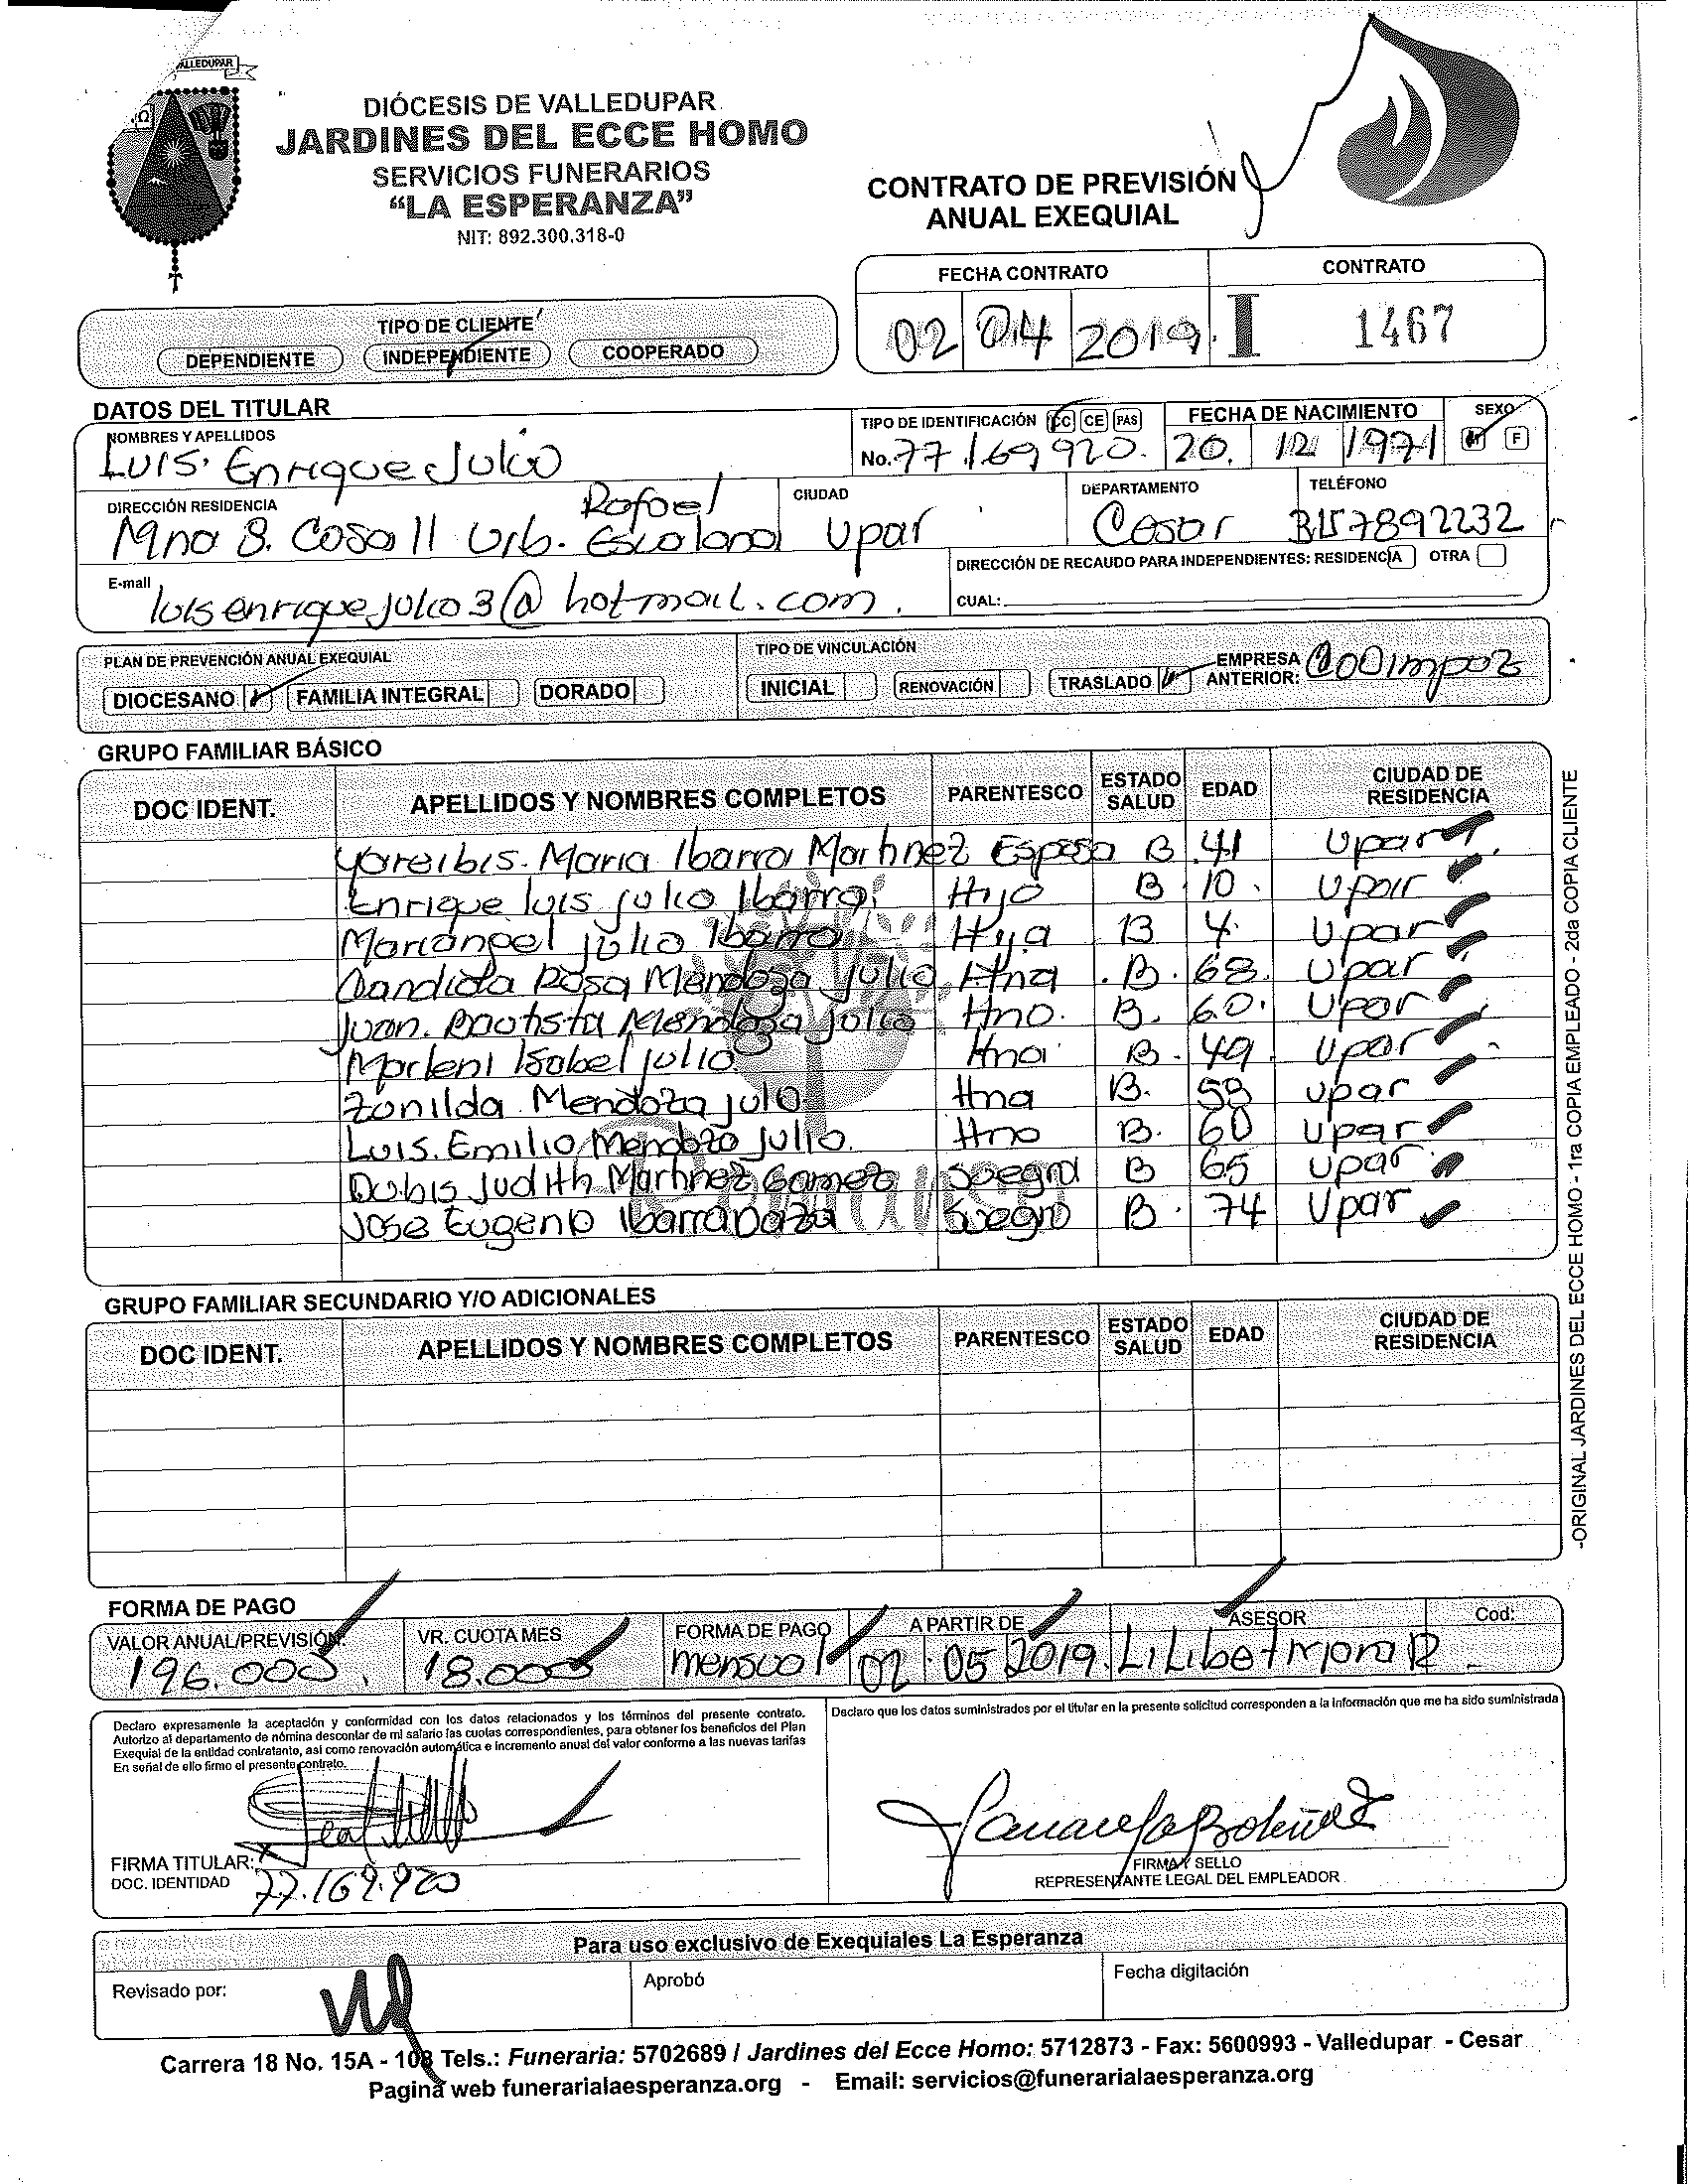 VALLEDUPAR
DIÓCESIS DE VALLEDUPAR
JARDINES DEL ECCE HOMO
SERVICIOS FUNERARIOS
"LA ESPERANZA"
NIT: 892.300.318-0
CONTRATO DE PREVISIÓN
ANUAL EXEQUIAL
FECHA CONTRATO CONTRATO
02 04 2019 I 1467
TIPO DE CLIENTE
DEPENDIENTE INDEPENDIENTE COOPERADO
DATOS DEL TITULAR
NOMBRES Y APELLIDOS TIPO DE IDENTIFICACIÓN CC CE PAS FECHA DE NACIMIENTO SEXO
Luis Enrique Julio No. 77.169.920. 20. 12 1971 M F
DIRECCIÓN RESIDENCIA CIUDAD DEPARTAMENTO TELÉFONO
Mna 8. Casa 11 Urb. Rafael Escalona Upar Cesar 3157892232
E-mail DIRECCIÓN DE RECAUDO PARA INDEPENDIENTES: RESIDENCIA OTRA
luisenriquejulio3@hotmail.com. CUAL:
PLAN DE PREVENCIÓN ANUAL EXEQUIAL TIPO DE VINCULACIÓN
DIOCESANO FAMILIA INTEGRAL DORADO INICIAL RENOVACIÓN TRASLADO EMPRESA ANTERIOR: Cooimpoz
GRUPO FAMILIAR BÁSICO
DOC IDENT. APELLIDOS Y NOMBRES COMPLETOS PARENTESCO ESTADO SALUD EDAD CIUDAD DE RESIDENCIA
Yareibis. Maria Ibarra Martinez Esposa B 41 Upar
Enrique luis julio Ibarra Hijo B 10 Upar
Mariangel julio Ibarra Hija B 4 Upar
Candida Rosa Mendoza julio Hna B 68 Upar
Juan. Bautista Mendoza julio Hno. B. 60 Upar
Marleni Isabel julio Hna B 49 Upar
Zunilda Mendoza julo Hna B. 58 upar
Luis. Emilio Mendozo Julio. Hno B. 60 Upar
Dubis Judith Martinez Gamez Suegra B 65 Upar
Jose Eugenio Ibarra Daza Suegro B 74 Upar
GRUPO FAMILIAR SECUNDARIO Y/O ADICIONALES
DOC IDENT. APELLIDOS Y NOMBRES COMPLETOS PARENTESCO ESTADO SALUD EDAD CIUDAD DE RESIDENCIA
-ORIGINAL JARDINES DEL ECCE HOMO - 1ra COPIA EMPLEADO - 2da COPIA CLIENTE
FORMA DE PAGO
VALOR ANUAL/PREVISIÓN VR. CUOTA MES FORMA DE PAGO A PARTIR DE ASESOR Cod:
196.000 18.000 mensual 02 05 2019. Lilibet Mora R
Declaro expresamente la aceptación y conformidad con los datos relacionados y los términos del presente contrato.
Autorizo al departamento de nómina descontar de mi salario las cuotas correspondientes, para obtener los beneficios del Plan
Exequial de la entidad contratante, asi como renovación automática e incremento anual del valor conforme a las nuevas tarifas
En señal de ello firmo el presente contrato.
Declaro que los datos suministrados por el titular en la presente solicitud corresponden a la información que me ha sido suministrada
FIRMA TITULAR:
DOC. IDENTIDAD 77.169.920
FIRMA Y SELLO
REPRESENTANTE LEGAL DEL EMPLEADOR
Para uso exclusivo de Exequiales La Esperanza
Revisado por: Aprobó Fecha digitación
Carrera 18 No. 15A - 108 Tels.: Funeraria: 5702689 / Jardines del Ecce Homo: 5712873 - Fax: 5600993 - Valledupar - Cesar
Pagina web funerarialaesperanza.org - Email: servicios@funerarialaesperanza.org